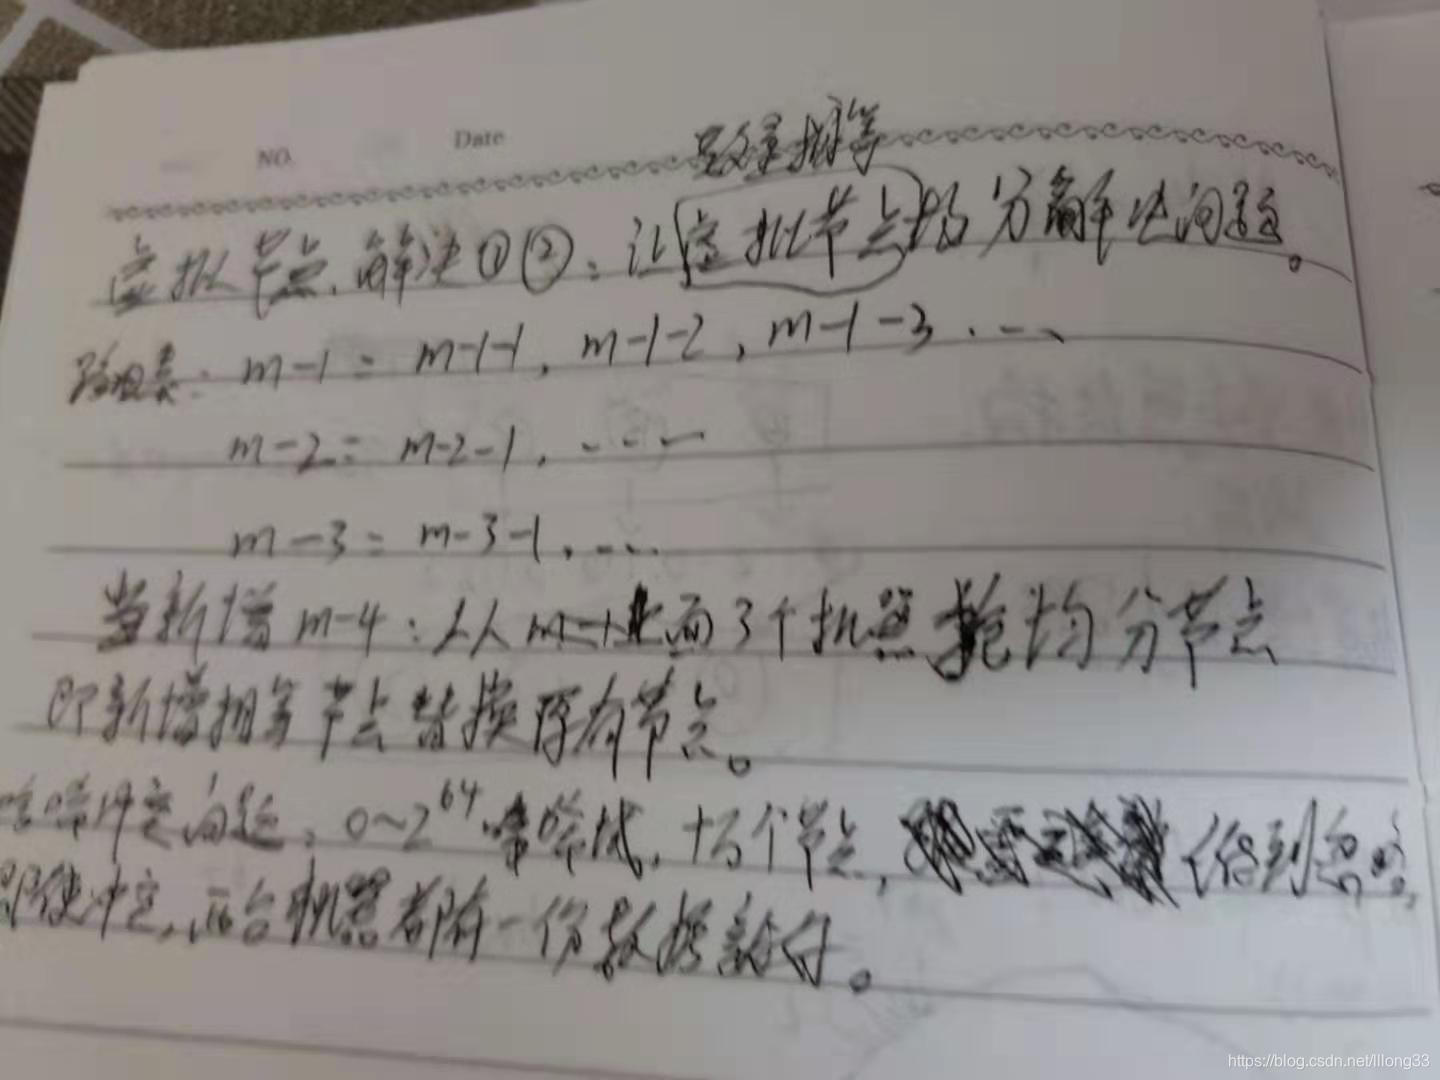 NO.
Date
数量相等
虚拟节点解决①②：让虚拟节点均分解决问题。
路由表：m-1 = m-1-1, m-1-2, m-1-3 . . .
m-2 = m-2-1, - - -
m-3 = m-3-1, - - -
当新增 m-4：从 上面3个机器 均分节点
即新增相等节点替换原有节点。
哈希冲突问题：0~2^64 哈希域，十万个节点， 低到忽略，
即使冲突，两台机器都存一份数据
https://blog.csdn.net/lllong33